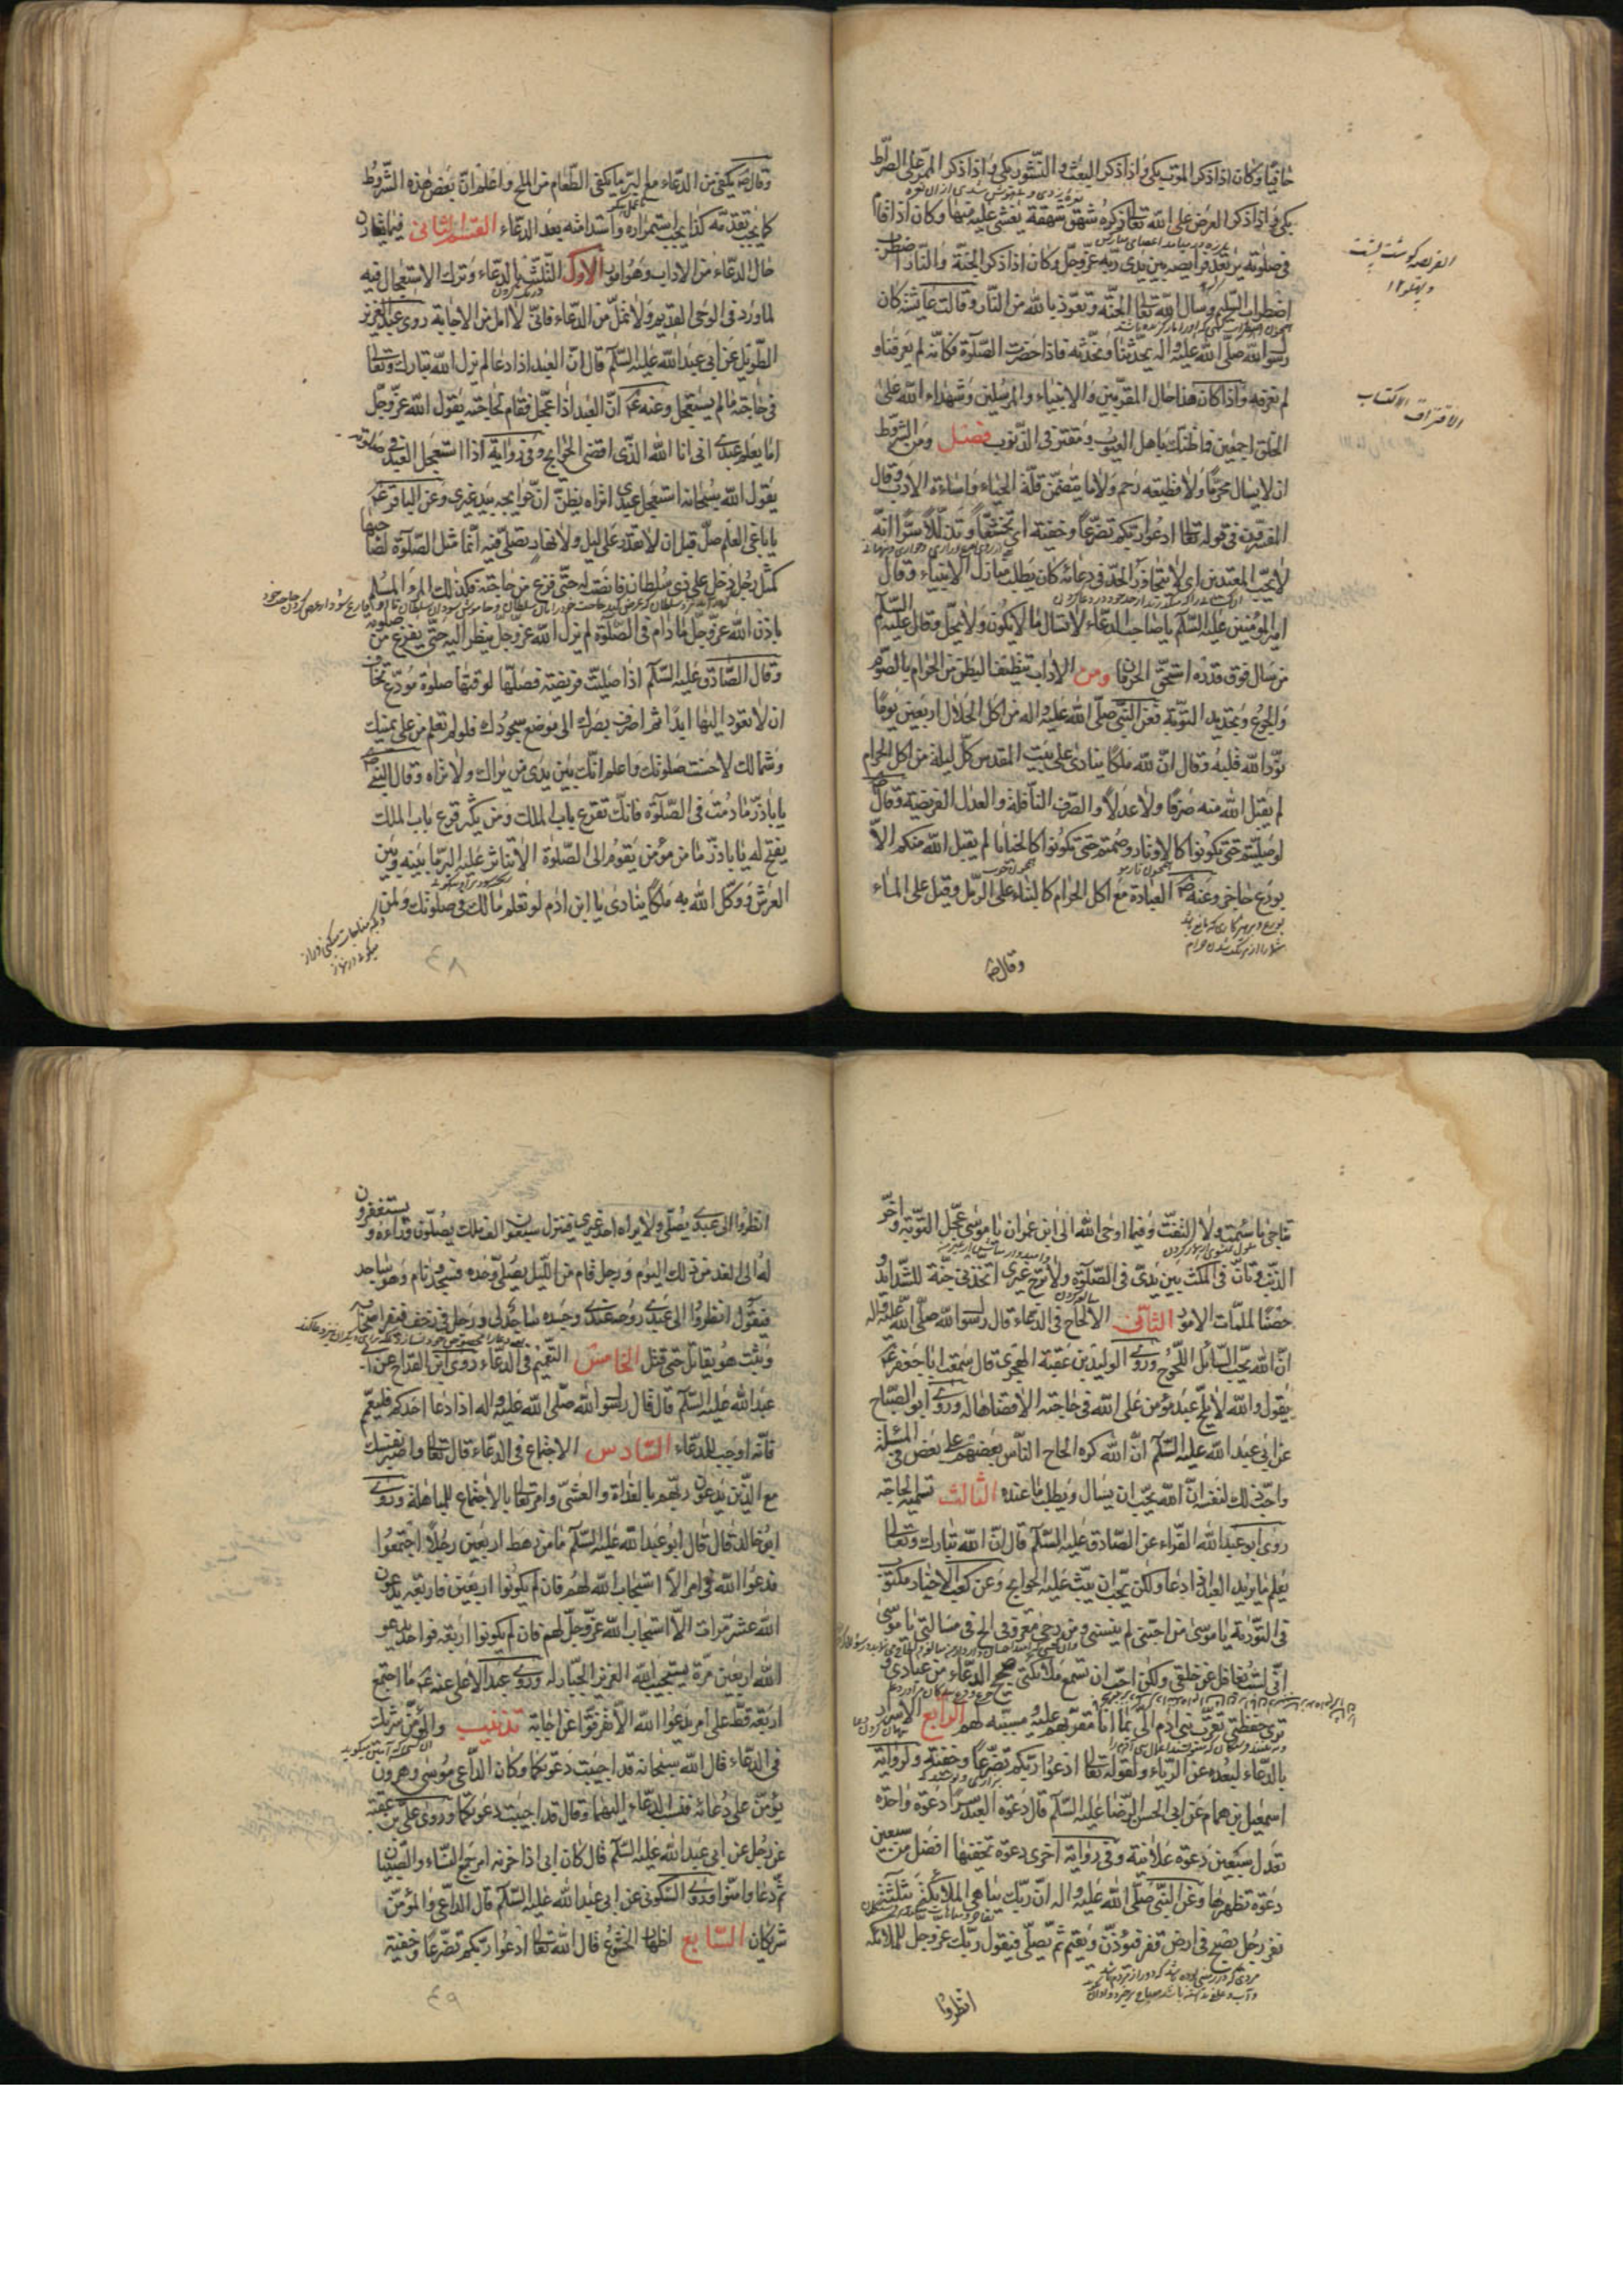 حافيا وكان اذا ذكر الموت بكى واذا ذكر البعث والنشور بكى واذا ذكر الممر على الصراط
بكى واذا ذكر العرض على الله تعالى ذكره شهق شهقة يغشى عليه منها وكان اذا قام
فى صلوته يرتعد فرايصه بين يدى ربه عز وجل وكان اذا ذكر الجنة والنار اضطرب
اضطراب السليم وسال الله تعالى الجنة وتعوذ بالله من النار وقالت عايشة كان
رسول الله صلى الله عليه واله يحدثنا ونحدثه فاذا حضرت الصلوة فكانه لم يعرفنا و
لم نعرفه واذا كان هذا حال المقربين والانبياء والمرسلين وشهداء الله على
الخلق اجمعين فما ظنك باهل العيوب ومقترفى الذنوب فصل ومن الشروط
ان لا يسال محرما ولا قطيعه رحم ولا ما يتضمن قلة الحياء واساءة الادب وقال
المفسرون فى قوله تعالى ادعوا ربكم تضرعا وخفية اى تخشعا وتذللا سرا انه
لا يحب المعتدين اى لا يتجاوز الحد فى دعائه كان يطلب منازل الانبياء وقال
امير المؤمنين عليه السلام يا صاحب الدعاء لا تسال ما لا يكون ولا يحل وقال عليه السلام
من سال فوق قدره استحق الحرمان ومن الاداب تنظيف البطن من الحرام بالصوم
والجوع وتجديد التوبة فعن النبى صلى الله عليه واله من اكل الحلال اربعين يوما
نور الله قلبه وقال ان لله ملكا ينادى على بيت المقدس كل ليلة من اكل الحرام
لم يقبل الله منه صرفا ولا عدلا والصرف النافلة والعدل الفريضة وقال ص
لو صليتم حتى تكونوا كالاوتار وصمتم حتى تكونوا كالحنايا لم يقبل الله منكم الا
بورع حاجز وعنه ص العبادة مع اكل الحرام كالبناء على الرمل وقيل على الماء
وقال ص
الفريصه گوشت پشت
و پهلو ١٢
الاقتراف الاكتساب
وقال ص يكفى من الدعاء مع البر ما يكفى الطعام من الملح واعلم ان بعض هذه الشروط
كما يجب تقدمه كذا يجب استمراره واستدامته بعد الدعاء القسم الثانى فيما يقارن
حال الدعاء من الاداب وهو امور الاول التلبث بالدعاء وترك الاستعجال فيه
لما ورد فى الوحى القديم ولا تمل من الدعاء فانى لا امل من الاجابة روى عبد العزيز
الطويل عن ابى عبد الله عليه السلام قال ان العبد اذا دعا لم يزل الله تبارك وتعالى
فى حاجته ما لم يستعجل وعنه ع ان العبد اذا عجل فقام لحاجته يقول الله عز وجل
اما يعلم عبدى انى انا الله الذى اقضى الحوايج وفى رواية اذا استعجل العبد فى صلوته
يقول الله سبحانه استعجل عبدى اتراه يظن ان حوايجه بيد غيرى وعن الباقر ع
يا باغى العلم صل قبل ان لا تقدر على ليل ولا نهار تصلى فيه انما مثل الصلوة لصاحبها
كمثل رجل دخل على ذى سلطان فانصت له حتى فرغ من حاجته فكذلك المرء المسلم
باذن الله عز وجل ما دام فى الصلوة لم يزل الله عز وجل ينظر اليه حتى يفرغ من صلوته
وقال الصادق عليه السلام اذا صليت فريضة فصلها لوقتها صلوة مودع تخاف
ان لا تعود اليها ابدا ثم اضرف بصرك الى موضع سجودك فلو لم تعلم من على يمينك
وشمالك لاحسنت صلوتك واعلم انك بين يدى من يراك ولا تراه وقال النبى ص
يا باذر ما دمت فى الصلوة فانك تقرع باب الملك ومن يكثر قرع باب الملك
يفتح له يا باذر ما من مؤمن يقوم الى الصلوة الا تناثر عليه البر ما بينه وبين
العرش ووكل الله به ملكا ينادى يا ابن ادم لو تعلم ما لك فى صلوتك ولمن
٤٨
تناجى ما سئمت ولا التفت وفيما اوحى الله الى ابن عمران يا موسى عجل التوبة واخر
الذنب وتان فى المكث بين يدى فى الصلوة ولا ترج غيرى اتخذنى جنة للشدائد و
حصنا لملمات الامور الثانى الالحاح فى الدعاء قال رسول الله صلى الله عليه واله
ان الله يحب السائل اللحوح وروى الوليد بن عقبة الهجرى قال سمعت ابا جعفر ع
يقول والله لا يلح عبد مؤمن على الله فى حاجته الا قضاها له وروى ابو الصباح
عن ابى عبد الله عليه السلام ان الله كره الحاح الناس بعضهم على بعض فى المسئلة
واحب ذلك لنفسه ان الله يحب ان يسال ويطلب ما عنده الثالث تسمية الحاجة
روى ابو عبد الله الفراء عن الصادق عليه السلام قال ان الله تبارك وتعالى
يعلم ما يريد العبد اذا دعا ولكن يحب ان يبث عليه الحوايج وعن كعب الاحبار مكتوب
فى التورية يا موسى من احبنى لم ينسنى ومن رجى معروفى الح فى مسالتى يا موسى
انى لست بغافل عن خلقى ولكن احب ان تسمع ملائكتى ضجيج الدعاء من عبادى و
ترى حفظتى تقرب بنى ادم الى بما انا مقويهم عليه ومسببه لهم الرابع الاسرار
بالدعاء لبعده عن الرياء ولقوله تعالى ادعوا ربكم تضرعا وخفية ولرواية
اسمعيل بن همام عن ابى الحسن الرضا عليه السلام قال دعوة العبد سرا دعوة واحدة
تعدل سبعين دعوة علانية وفى رواية اخرى دعوة تخفيها افضل من سبعين
دعوة تظهرها وعن النبى صلى الله عليه واله ان ربك يباهى الملائكة بثلثة
نفر رجل يصبح فى ارض قفر فيؤذن ويقيم ثم يصلى فيقول ربك عز وجل للملائكة
انظروا
انظروا الى عبدى يصلى ولا يراه احد غيرى فينزل سبعون الف ملك يصلون وراءه ويستغفرون
له الى الغد من ذلك اليوم ورجل قام من الليل يصلى وحده فسجد ونام وهو ساجد
فيقول انظروا الى عبدى روحه عندى وجسده ساجد لى ورجل فى زحف فيفر اصحابه
ويثبت هو يقاتل حتى قتل الخامس التعميم فى الدعاء روى ابن القداح عن ابى
عبد الله عليه السلام قال قال رسول الله صلى الله عليه واله اذا دعا احدكم فليعم
فانه اوجب للدعاء السادس الاجتماع فى الدعاء قال تعالى واصبر نفسك
مع الذين يدعون ربهم بالغداة والعشى وامر تعالى بالاجتماع للمباهلة وروى
ابو خالد قال قال ابو عبد الله عليه السلام ما من رهط اربعين رجلا اجتمعوا
فدعوا الله فى امر الا استجاب الله لهم فان لم يكونوا اربعين فاربعة يدعون
الله عشر مرات الا استجاب الله عز وجل لهم فان لم يكونوا اربعة فواحد يدعو
الله اربعين مرة يستجيب الله العزيز الجبار له وروى عبد الاعلى عنه ع ما اجتمع
اربعة قط على امر فدعوا الله الا تفرقوا عن اجابة تذنيب والمؤمن شريك
فى الدعاء قال الله سبحانه قد اجيبت دعوتكما وكان الداعى موسى وهرون
يؤمن على دعائه فنسب الدعاء اليهما وقال قد اجيبت دعوتكما وروى على بن عقبة
عن رجل عن ابى عبد الله عليه السلام قال كان ابى اذا حزنه امر جمع النساء والصبيان
ثم دعا وامنوا وروى السكونى عن ابى عبد الله عليه السلام قال الداعى والمؤمن
شريكان السابع اظهار الخشوع قال الله تعالى ادعوا ربكم تضرعا وخفية
٤٩